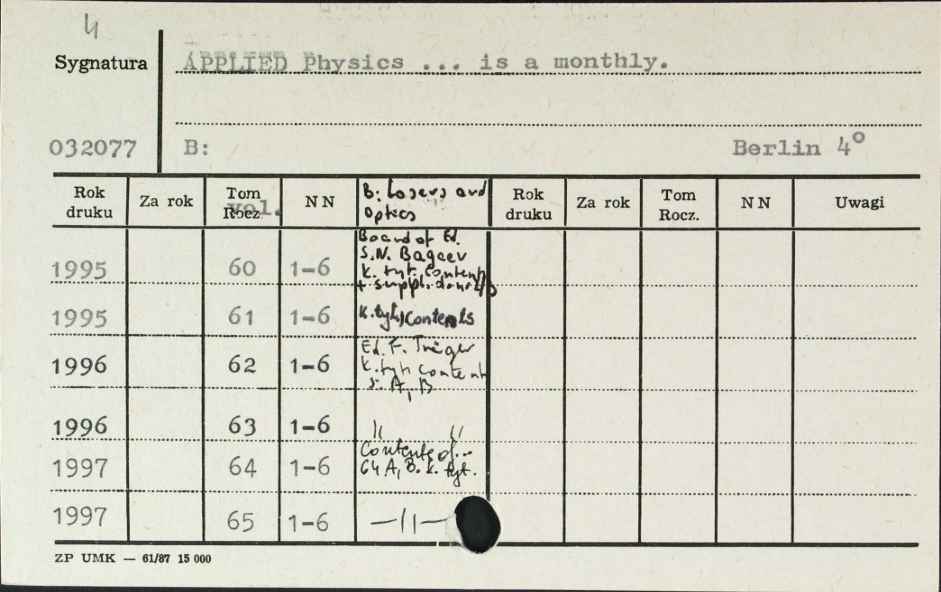 4
Sygnatura APPLIED Physics ... is a monthly.
032077 B: Berlin 4°
Rok druku Za rok Tom Rocz. vol. NN B: Lasers and Optics Rok druku Za rok Tom Rocz. NN Uwagi
Board of Ed.
S.N. Bagaev
1995 60 1-6 k. tyt. Contents
+ suppl. do nr
1995 61 1-6 k. tyt, Contents
Ed. F. Träger
1996 62 1-6 k. tyt. contents
s. A, B
1996 63 1-6 " "
Contents of...
1997 64 1-6 64 A, B. k. tyt.
1997 65 1-6 —"—
ZP UMK — 61/87 15 000